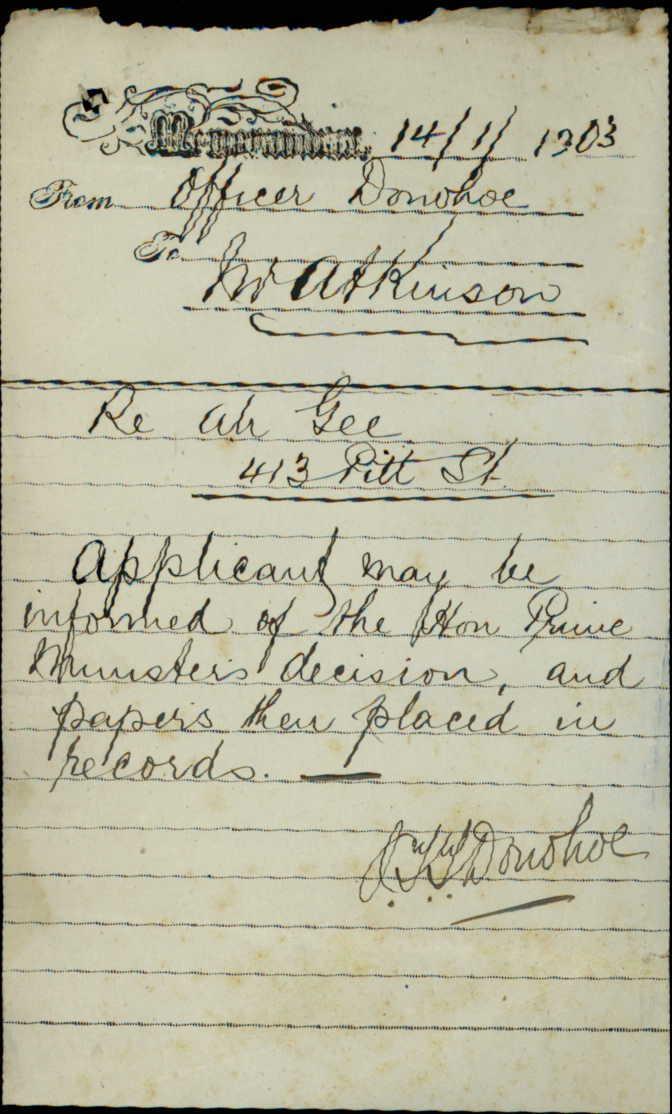 Memorandum. 14/1/1903
From Officer Donohoe
To
Mr Atkinson
Re Ah Gee
413 Pitt St.
Applicant may be
informed of the Hon Prime
Ministers decision, and
papers then placed in
records. —
Donohoe